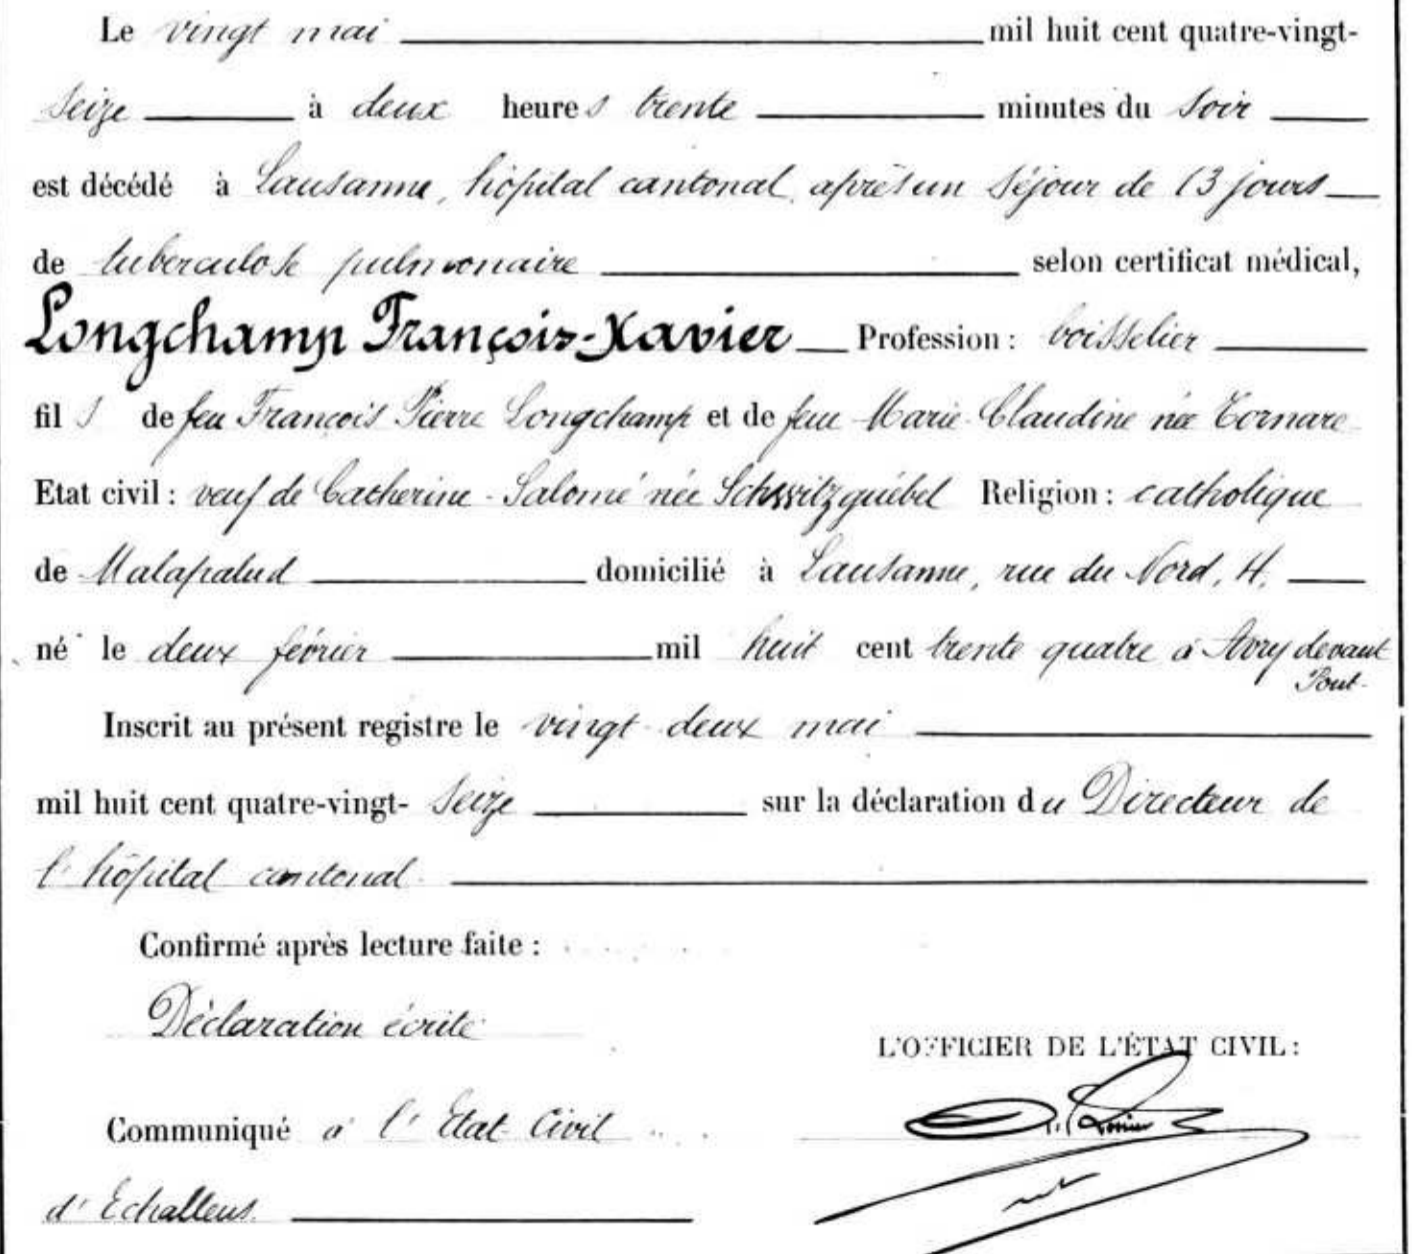 Le vingt mai mil huit cent quatre-vingt-
seize à deux heures trente minutes du soir
est décédé à Lausanne, hôpital cantonal, après un séjour de 13 jours
de tuberculose pulmonaire selon certificat médical,
Longchamp François-Xavier Profession : boisselier
fils de feu François Pierre Longchamp et de feue Marie-Claudine née Tornare
Etat civil : veuf de Catherine-Salomé née Schwitzguébel Religion : catholique
de Malapalud domicilié à Lausanne, rue du Nord, 4.
né le deux février mil huit cent trente quatre à Avry devant
Pont.
Inscrit au présent registre le vingt-deux mai
mil huit cent quatre-vingt-seize sur la déclaration du Directeur de
l'hôpital cantonal.
Confirmé après lecture faite :
Déclaration écrite
L'OFFICIER DE L'ÉTAT CIVIL :
Communiqué à l'Etat-Civil
d'Echallens.